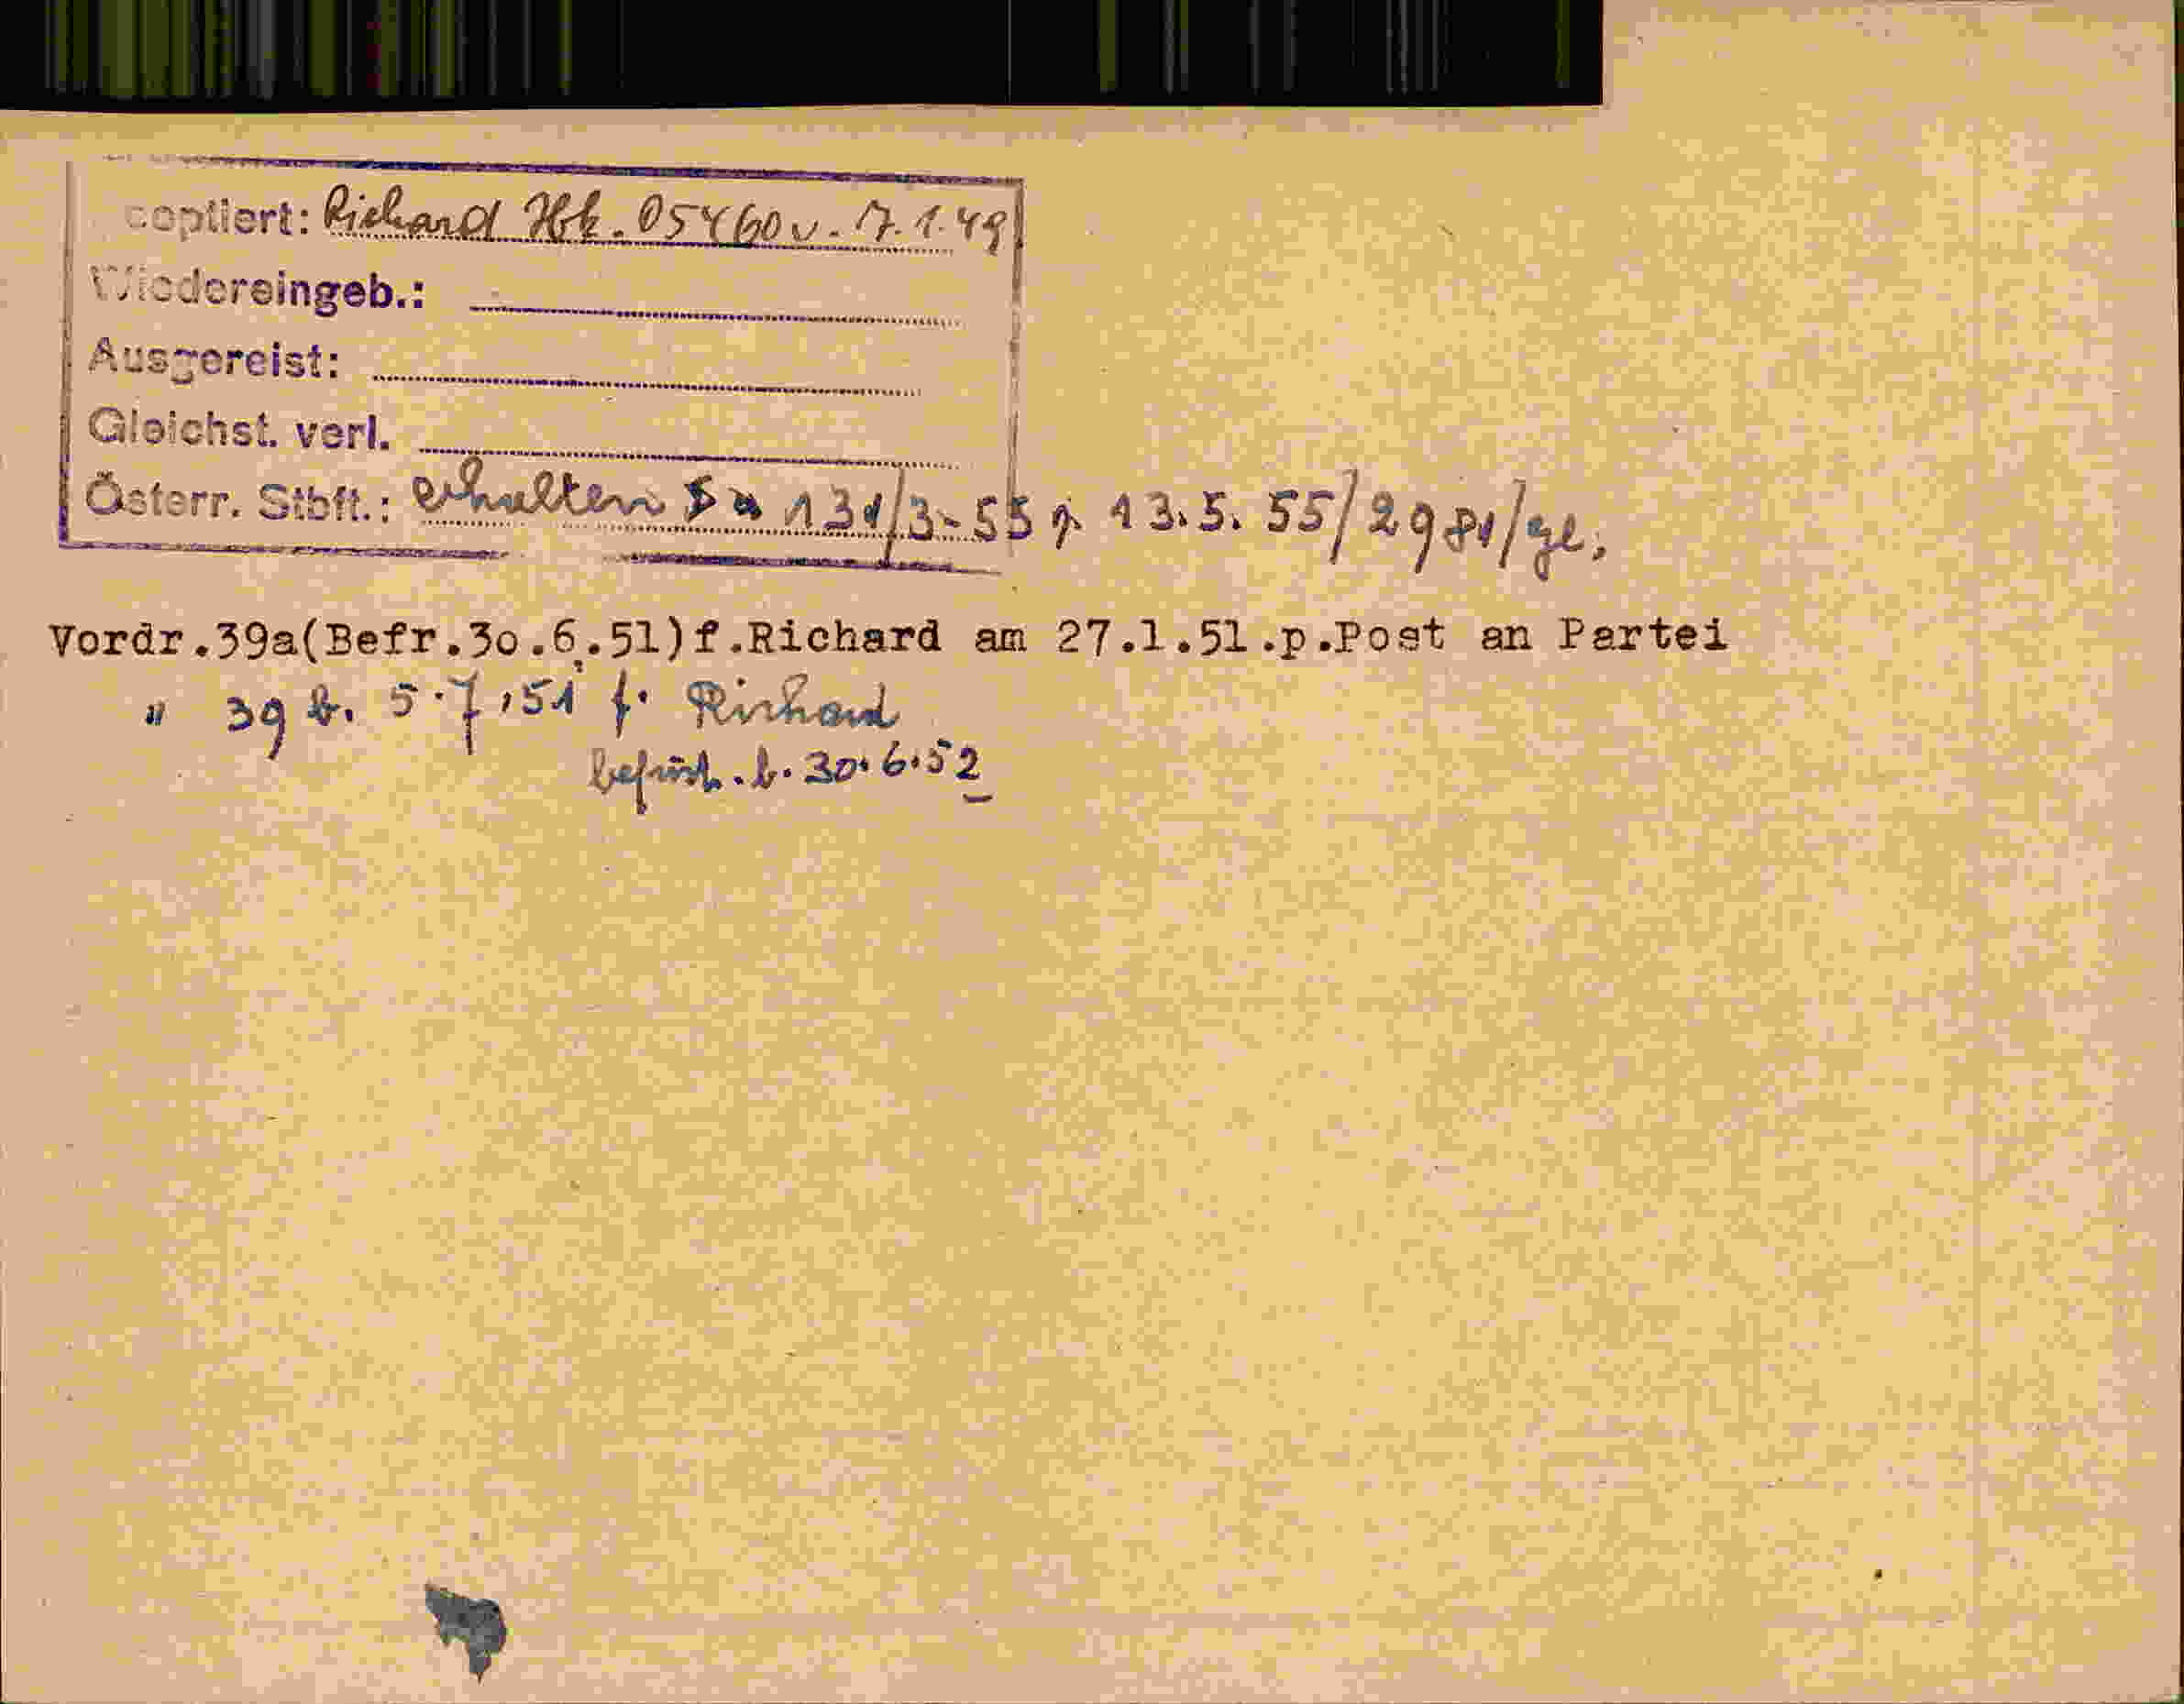 optiert: Richard Hbk. 05460 v. 7.1.49
Wiedereingeb.:
Ausgereist:
Gleichst. verl.
Österr. Stbft.: erhalten 131/3-55 13.5.55/2981/ge.
Vordr.39a(Befr.3o.6.51)f.Richard am 27.1.51.p.Post an Partei
" 39 b. 5.7.51 f. Richard
befrist. b. 30.6.52